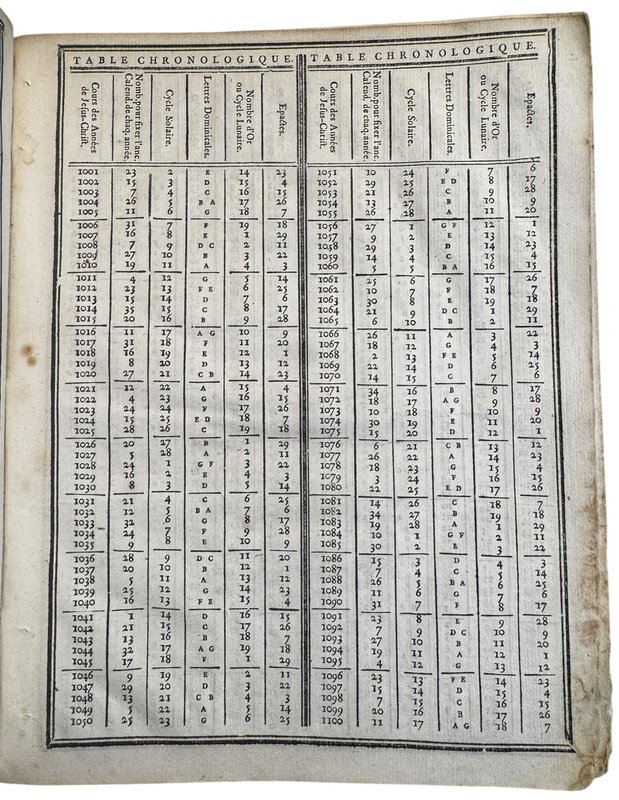 TABLE CHRONOLOGIQUE.
Cours des Années
de Jesus-Christ.
Nomb. pour fixer l'anc.
Calend. de chaq. année.
Cycle Solaire.
Lettres Dominicales.
Nombre d'Or
ou Cycle Lunaire.
Epactes.
1001 23 2 E 14 23
1002 15 3 D 15 4
1003 7 4 C 16 15
1004 26 5 B A 17 26
1005 11 6 G 18 7
1006 31 7 F 19 18
1007 16 8 E 1 29
1008 7 9 D C 2 11
1009 27 10 B 3 22
1010 19 11 A 4 3
1011 4 12 G 5 14
1012 23 13 F E 6 25
1013 15 14 D 7 6
1014 35 15 C 8 17
1015 20 16 B 9 28
1016 11 17 A G 10 9
1017 31 18 F 11 20
1018 16 19 E 12 1
1019 8 20 D 13 12
1020 27 21 C B 14 23
1021 12 22 A 15 4
1022 4 23 G 16 15
1023 24 24 F 17 26
1024 15 25 E D 18 7
1025 28 26 C 19 18
1026 20 27 B 1 29
1027 5 28 A 2 11
1028 24 1 G F 3 22
1029 16 2 E 4 3
1030 8 3 D 5 14
1031 21 4 C 6 25
1032 12 5 B A 7 6
1033 32 6 G 8 17
1034 24 7 F 9 28
1035 9 8 E 10 9
1036 28 9 D C 11 20
1037 20 10 B 12 1
1038 5 11 A 13 12
1039 25 12 G 14 23
1040 16 13 F E 15 4
1041 1 14 D 16 15
1042 21 15 C 17 26
1043 13 16 B 18 7
1044 32 17 A G 19 18
1045 17 18 F 1 29
1046 9 19 E 2 11
1047 29 20 D 3 22
1048 13 21 C B 4 3
1049 5 22 A 5 14
1050 25 23 G 6 25
TABLE CHRONOLOGIQUE.
Cours des Années
de Jesus-Christ.
Nomb. pour fixer l'anc.
Calend. de chaq. année.
Cycle Solaire.
Lettres Dominicales.
Nombre d'Or
ou Cycle Lunaire.
Epactes.
1051 10 24 F 7 6
1052 29 25 E D 8 17
1053 21 26 C 9 28
1054 13 27 B 10 9
1055 26 28 A 11 20
1056 17 1 G F 12 1
1057 9 2 E 13 12
1058 29 3 D 14 23
1059 14 4 C 15 4
1060 5 5 B A 16 15
1061 25 6 G 17 26
1062 10 7 F 18 7
1063 30 8 E 19 18
1064 21 9 D C 1 29
1065 6 10 B 2 11
1066 26 11 A 3 22
1067 18 12 G 4 3
1068 2 13 F E 5 14
1069 22 14 D 6 25
1070 14 15 C 7 6
1071 34 16 B 8 17
1072 18 17 A G 9 28
1073 10 18 F 10 9
1074 30 19 E 11 20
1075 15 20 D 12 1
1076 6 21 C B 13 12
1077 26 22 A 14 23
1078 18 23 G 15 4
1079 3 24 F 16 15
1080 22 25 E D 17 26
1081 14 26 C 18 7
1082 34 27 B 19 18
1083 19 28 A 1 29
1084 10 1 G F 2 11
1085 30 2 E 3 22
1086 15 3 D 4 3
1087 7 4 C 5 14
1088 26 5 B A 6 25
1089 11 6 G 7 6
1090 31 7 F 8 17
1091 23 8 E 9 28
1092 7 9 D C 10 9
1093 27 10 B 11 20
1094 19 11 A 12 1
1095 4 12 G 13 12
1096 23 13 F E 14 23
1097 15 14 D 15 4
1098 7 15 C 16 15
1099 20 16 B 17 26
1100 11 17 A G 18 7